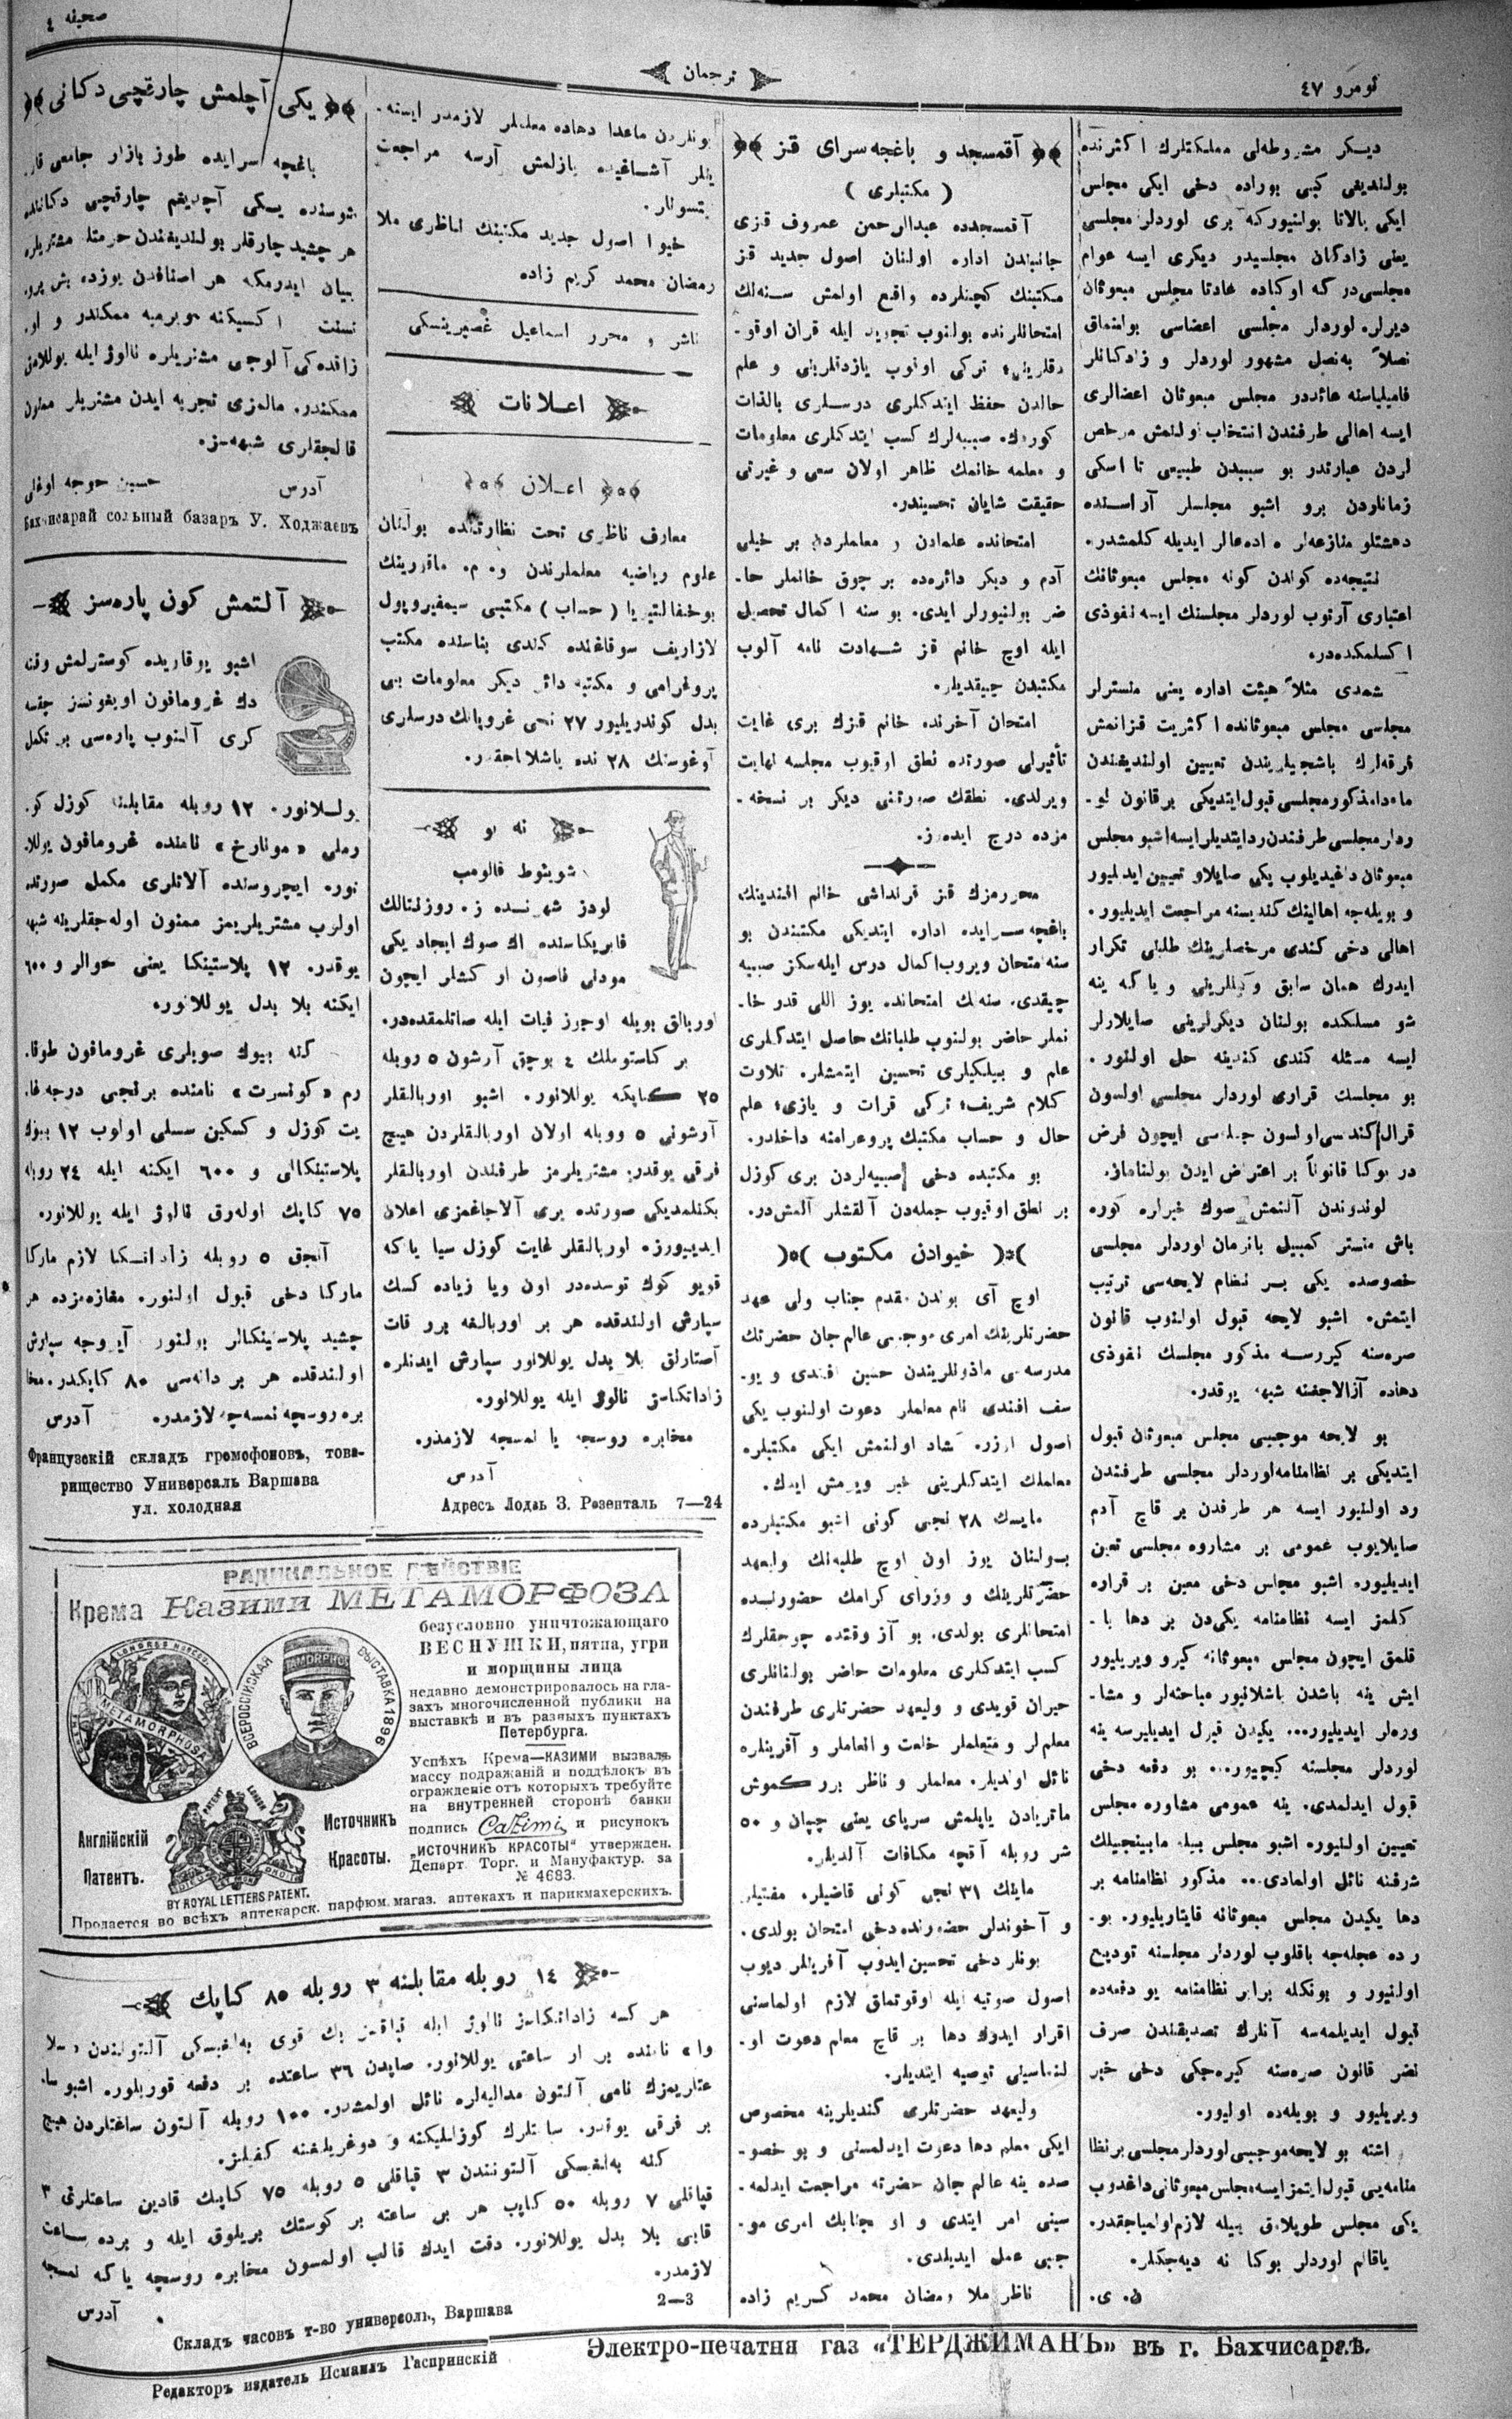 نومرو ٤٧
ترجمان
صحيفه ٤
ديكر مشروطه‌لى مملكتلرك اكثرنده
بولنديغى كبى بوراده دخى ايكى مجلس
ايكى بالاتا بولنيوركه برى لوردلر مجلسى
يعنى زادكان مجلسيدر ديكرى ايسه عوام
مجلسى‌در كه اوكاده عادتا مجلس مبعوثان
ديرلر. لوردلر مجلسى اعضاسى بولنماق
نصلاً به‌نصل مشهور لوردلر و زادكانلر
فاميلياسنه عائددر مجلس مبعوثان اعضالرى
ايسه اهالى طرفندن انتخاب اولنمش مرخص
لردن عبارتدر بو سببدن طبيعى تا اسكى
زمانلردن برو اشبو مجلسلر آراسنده
دهشتلو منازعه‌لر ايديله كلمشدر.
نتيجه‌ده كوندن كونه مجلس مبعوثانك
اعتبارى آرتوب لوردلر مجلسنك ايسه نفوذى
اكسلمكده‌در.
شمدى مثلاً هيئت اداره يعنى منسترلر
مجلسى مجلس مبعوثانده اكثريت قزانمش
فرقه‌لرك باشجيلريندن تعيين اولنديغندن
مادامذكور مجلسى قبول ايتديكى بر قانون لو-
ردلر مجلسى طرفندن رد ايتديلر ايسه اشبو مجلس
مبعوثان داغيديلوب يكى صايلاو تعيين ايديليور
و بويله‌جه اهالينك كنديسنه مراجعت ايديليور.
اهالى دخى كندى مرخصلرينك طلبنى تكرار
ايدرك همان سابق وكيللرينى و ياكه ينه
شو مسلكده بولنان ديكرلرينى صايلارلر
ايسه مسئله كندى كندينه حل اولنور.
بو مجلسك قرارى لوردلر مجلسى اولسون
قرال كندسى اولسون جمله‌سى ايچون فرض
در بوكا قانوناً بر اعتراض ايدن بولنماز.
لوندوندن آلنمش صوك خبرلره كوره
باش منستر كمبيل بانرمان لوردلر مجلسى
خصوصده يكى بر نظام لايحه‌سى ترتيب
ايتمش. اشبو لايحه قبول اولنوب قانون
صره‌سنه كيررسه مذكور مجلسك نفوذى
دهاده آزالاجغنه شبهه يوقدر.
بو لايحه موجبى مجلس مبعوثان قبول
ايتديكى بر نظامنامه لوردلر مجلسى طرفندن
رد اولنيور ايسه هر طرفدن بر قاچ آدم
صايلايوب عمومى بر مشاوره مجلسى تعيين
ايديليور. اشبو مجلس دخى معين بر قراره
كلمز ايسه نظامنامه يكيدن بر دها با-
قلمق ايچون مجلس مبعوثانه كيرو ويريليور
ايش ينه باشدن باشلانيور مباحثه‌لر و مشا-
وره‌لر ايديليور... يكيدن قبول ايديليرسه ينه
لوردلر مجلسنه كيچيور... بو دفعه دخى
قبول ايدلمدى. ينه عمومى مشاوره مجلس
تعيين اولنيور. اشبو مجلس بيله مابينجيلك
شرفنه نائل اولمادى... مذكور نظامنامه بر
دها يكيدن مجلس مبعوثانه قايتاريليور. بو-
راده عجله‌جه باقلوب لوردلر مجلسنه توديع
اولنيور و بونكله برابر نظامنامه بو دفعه‌ده
قبول ايديلمه‌سه آنلرك تصديقندن صرف
نضر قانون صره‌سنه كيره‌جكى دخى خبر
ويريليور و بويله‌ده اوليور.
اشته بو لايحه موجبى لوردلر مجلسى بر نظا
منامه‌يى قبول ايتمز ايسه مجلس مبعوثانى داغدوب
يكى مجلس طوپلامق بيله لازم اولمياجقدر.
باقالم لوردلر بوكا نه ديه‌جكلر.
ن. ى.
آقمسجد و باغچه‌سراى قز
( مكتبلرى )
آقمسجدده عبدالرحمن عمروف قزى
جانبندن اداره اولنان اصول جديد قز
مكتبنك كچنلرده واقع اولمش سنه‌لك
امتحانلرنده بولنوب تجويد ايله قران اوقو-
دقلرينى؛ تركى اوقوب يازدقلرينى و علم
حالدن حفظ ايتدكلرى درسلرى بالذات
كوردك. صبيه‌لرك كسب ايتدكلرى معلومات
و معلمه خانمك ظاهر اولان سعى و غيرتى
حقيقت شايان تحسيندر.
امتحانده علمادن و معلملردن بر خيلى
آدم و ديكر دائره‌ده بر چوق خانملر حا-
ضر بولنيورلر ايدى. بو سنه اكمال تحصيل
ايله اوچ خانم قز شهادت نامه آلوب
مكتبدن چيقديلر.
امتحان آخرنده خانم قزك برى غايت
تأثيرلى صورتده نطق اوقيوب مجلسه نهايت
ويرلدى. نطقك صورتنى ديكر بر نسخه-
مزده درج ايده‌رز.
محررمزك قز قرنداشى خانم افندينك
باغچه سرايده اداره ايتديكى مكتبندن بو
سنه امتحان ويروب اكمال درس ايله سكز صبيه
چيقدى. سنه‌لك امتحانده يوز اللى قدر خا-
نملر حاضر بولنوب طلباتك حاصل ايتدكلرى
علم و بيلكيلرى تحسين ايتمشلر. تلاوت
كلام شريف؛ تركى قرات و يازى؛ علم
حال و حساب مكتبك پروغرامنه داخلدر.
بو مكتبده دخى صبيه‌لردن برى كوزل
بر نطق اوقيوب جمله‌دن آلقشلر آلمش‌در.
خيوادن مكتوب
اوچ آى بوندن مقدم جناب ولى عهد
حضرتلرينك امرى موجبى عالم جان حضرتك
مدرسه‌سى ماذونلريندن حسين افندى و يو-
سف افندى نام معلملر دعوت اولنوب يكى
اصول اوزره كشاد اولنمش ايكى مكتبلره
معلملك ايتدكلرينى خبر ويرمش ايدك.
مايسك ٢٨ نجى كونى اشبو مكتبلرده
بولنان يوز اون اوچ طلبه‌نك وليعهد
حضرتلرينك و وزراى كرامك حضورنده
امتحانلرى بولدى. بو آز وقتده چوجقلرك
كسب ايتدكلرى معلومات حاضر بولنانلرى
حيران قويدى و وليعهد حضرتلرى طرفندن
معلملر و متعلملر خلعت و انعاملر و آفرينلره
نائل اولديلر. معلملر و ناظر برر كموش
ماتريادن ياپلمش سرپاى يعنى چپان و ٥٠
شر روبله آقچه مكافات آلديلر.
مايك ٣١ نجى كونى قاضيلر. مفتيلر
و آخوندلر حضورنده دخى امتحان بولدى.
بونلر دخى تحسين ايدوب آفرينلر ديوب
اصول صوتيه ايله اوقوتماق لازم اولماسنى
اقرار ايدوب دها بر قاچ معلم دعوت او-
لنماسينى توصيه ايتديلر.
وليعهد حضرتلرى كنديلرينه مخصوص
ايكى معلم دها دعوت ايدلمسنى و بو خصو-
صده ينه عالم جان حضرته مراجعت ايدلمه-
سينى امر ايتدى و او جنابك امرى مو-
جبى عمل ايديلدى.
ناظر ملا رمضان محمد كريم زاده
بونلردن ماعدا دهاده معلملر لازمدر ايسته-
ينلر آشاغيده يازلمش آرسه مراجعت
ايتسونلر.
خيوا اصول جديد مكتبنك ناظرى ملا
رمضان محمد كريم زاده
ناشر و محرر اسماعيل غصپرينسكى
اعلانات
اعلان
معارف ناظرى تحت نظارتنده بولنان
علوم رياضيه معلملرندن و. م.
بوخغالتيريا (حساب) مكتبى سيمفيروپول
لازاريف سوقاغنده كندى بناسنده مكتب
پروغرامى و مكتبه دائر ديكر معلومات بى
بدل كوندريليور ٢٧ نجى غروپانك درسلرى
آوغوستك ٢٨ نده باشلاناجقدر.
نه بو
شويتوط قالومب
لودز شهرنده ز. روزنتالك
فابريكاسنده اك صوك ايجاد يكى
مودلى فاصون ار كشلر ايچون
اوربالق بويله اوجوز فيات ايله صاتلمقده‌در.
بر كاستوملك ٤ بوچق آرشون ٥ روبله
٢٥ كاپكه يوللانور. اشبو اوربالقلر
آرشونى ٥ روبله اولان اوربالقلردن هيچ
فرقى يوقدر؛ مشتريلرمز طرفندن اوربالقلر
بكنلمديكى صورتده برى آلاجاغمزى اعلان
ايدييورز. اوربالقلر غايت كوزل سيا ياكه
قويو كوك توسده‌در اون ويا زياده كسك
سپارش اولندقده هر بر اوربالغه برر قات
آستارلق بلا بدل يوللانور سپارش ايدنلره
زاداتكاسز نالوژ ايله يوللانور.
مخابره روسجه يا نمسجه لازمدر.
آدرس
Адресъ Лодзь З. Розенталь 7—24
يكى آچلمش چارقچى دكانى
باغچه سرايده طوز بازار جامعى قار-
شوسنده يكى آچديغم چارقچى دكاننده
هر چشيد چارقلر بولنديغندن حرمتلو مشتريلره
بيان ايدرمكه هر اصنافدن يوزده بش پرو-
سنت اكسيكنه ويرمه ممكندر و او-
زاقده‌كى آلوجى مشتريلره نالوژ ايله يوللامق
ممكندر. مالمزى تجربه ايدن مشتريلر ممنون
قالجقلرى شبهه‌سز.
آدرس حسين خوجه اوغلى
Бахчисарай сольный базаръ У. Ходжаевъ
آلتمش كون پاره‌سز
اشبو يوقاريده كوسترلمش وقته
دك غروموفون اويغونسز چقسه
كرى آلنوب پاره‌سى بر تكمل
يوللانور. ١٢ روبله مقابلنده كوزل كو-
رملى «مونارخ» نامنده غروماقون يوللا-
نور. ايچروسنده آلاتلرى مكمل صورتده
اولوب مشتريلريمز ممنون اوله‌جقلرينه شبهه
يوقدر. ١٢ پلاستينكا يعنى حوالر و ٦٠٠
ايكنه بلا بدل يوللانور.
كنه بيوك صويلرى غروماقون طوقا-
رم «كونسرت» نامنده برنجى درجه غا-
يت كوزل و كسكين سسلى اولوب ١٢ بيوك
پلاستينكالى و ٦٠٠ ايكنه ايله ٢٤ روبله
٧٥ كاپك اوله‌رق نالوژ ايله يوللانور.
آنجق ٥ روبله زاداتكا لازم ماركا
ماركا دخى قبول اولنور. مغازه‌مزده هر
چشيد پلاستينكالر بولنور آيروجه سپارش
اولندقده هر بر دانه‌سى ٨٠ كاپكدر. مخا
بره روسچه نمسه‌جه لازمدر. آدرس
Французскій складъ громофоновъ, това-
рищество Универсаль Варшава
ул. холодная
РАДИКАЛЬНОЕ ДѢЙСТВІЕ
Крема Казими МЕТАМОРФОЗА
безусловно уничтожающаго
ВЕСНУШКИ, пятна, угри
и морщины лица
недавно демонстрировалось на гла-
захъ многочисленной публики на
выставкѣ и въ разныхъ пунктахъ
Петербурга.
Успѣхъ Крема—КАЗИМИ вызвалъ
массу подражаній и поддѣлокъ въ
огражденіе отъ которыхъ требуйте
на внутренней сторонѣ банки
подпись Cazimi и рисунокъ
„ИСТОЧНИКЪ КРАСОТЫ“ утвержден.
Департ. Торг. и Мануфактур. за
№ 4683.
METAMORPHOSA
ВСЕРОССІЙСКАЯ ВЫСТАВКА 1896
Англійскій
Патентъ.
Источникъ
Красоты.
BY ROYAL LETTERS PATENT.
Продается во всѣхъ аптекарск. парфюм. магаз. аптекахъ и парикмахерскихъ.
١٤ روبله مقابلنه ٣ روبله ٨٥ كاپك
هر كسه زاداتكاسز نالوژ ايله قپاقسز پك قوى آلتونلندن
وا» نامنده بر ار ساعتى يوللانور. صاپدن ٣٦ ساعتده بر دفعه قوريلور. اشبو سا-
عتلريمزك نامى آلتون مداليه‌لره نائل اولمشدر. ١٠٠ روبله آلتون ساعتلردن هيچ
بر فرقى يوقدر. ساعتلرك كوزللیكنه و دوغريلغنه كفيلز.
كنه آلتونندن ٣ قپاقلى ٥ روبله ٧٥ كاپك قادين ساعتلرى ٣
قپاقلى ٧ روبله ٥٠ كاپك هر بر ساعته بر كوستك بريلوق ايله و برده ساعت
قابى بلا بدل يوللانور. دقت ايدك قالب اولمسون مخابره روسچه ياكه نمسجه
لازمدر.
آدرس 2—3
Складъ часовъ т-во универсоль, Варшава
Редакторъ издатель Исмаилъ Гаспринскій
Электро-печатня газ «ТЕРДЖИМАНЪ» въ г. Бахчисараѣ.